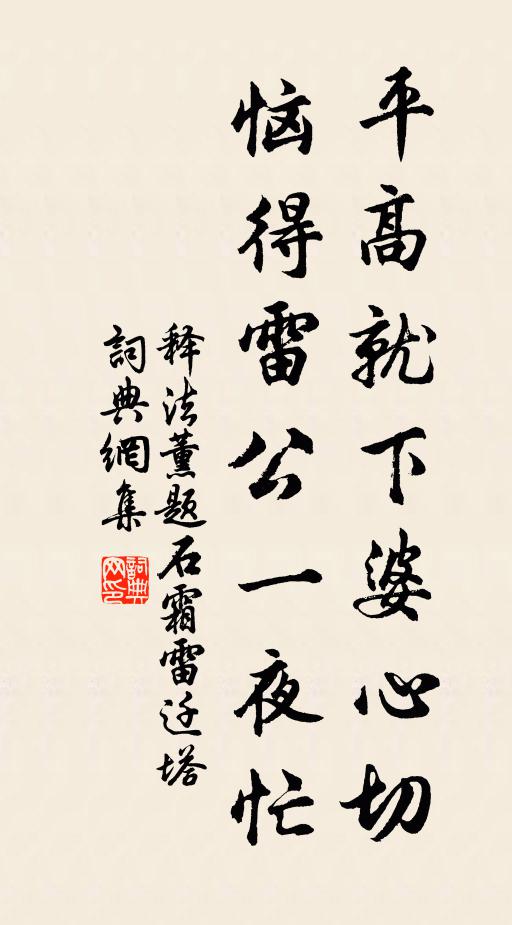 平高就下婆心切
恼得雷公一夜忙
释法薰题石霜雷迁塔
詞典網集
詞典网印